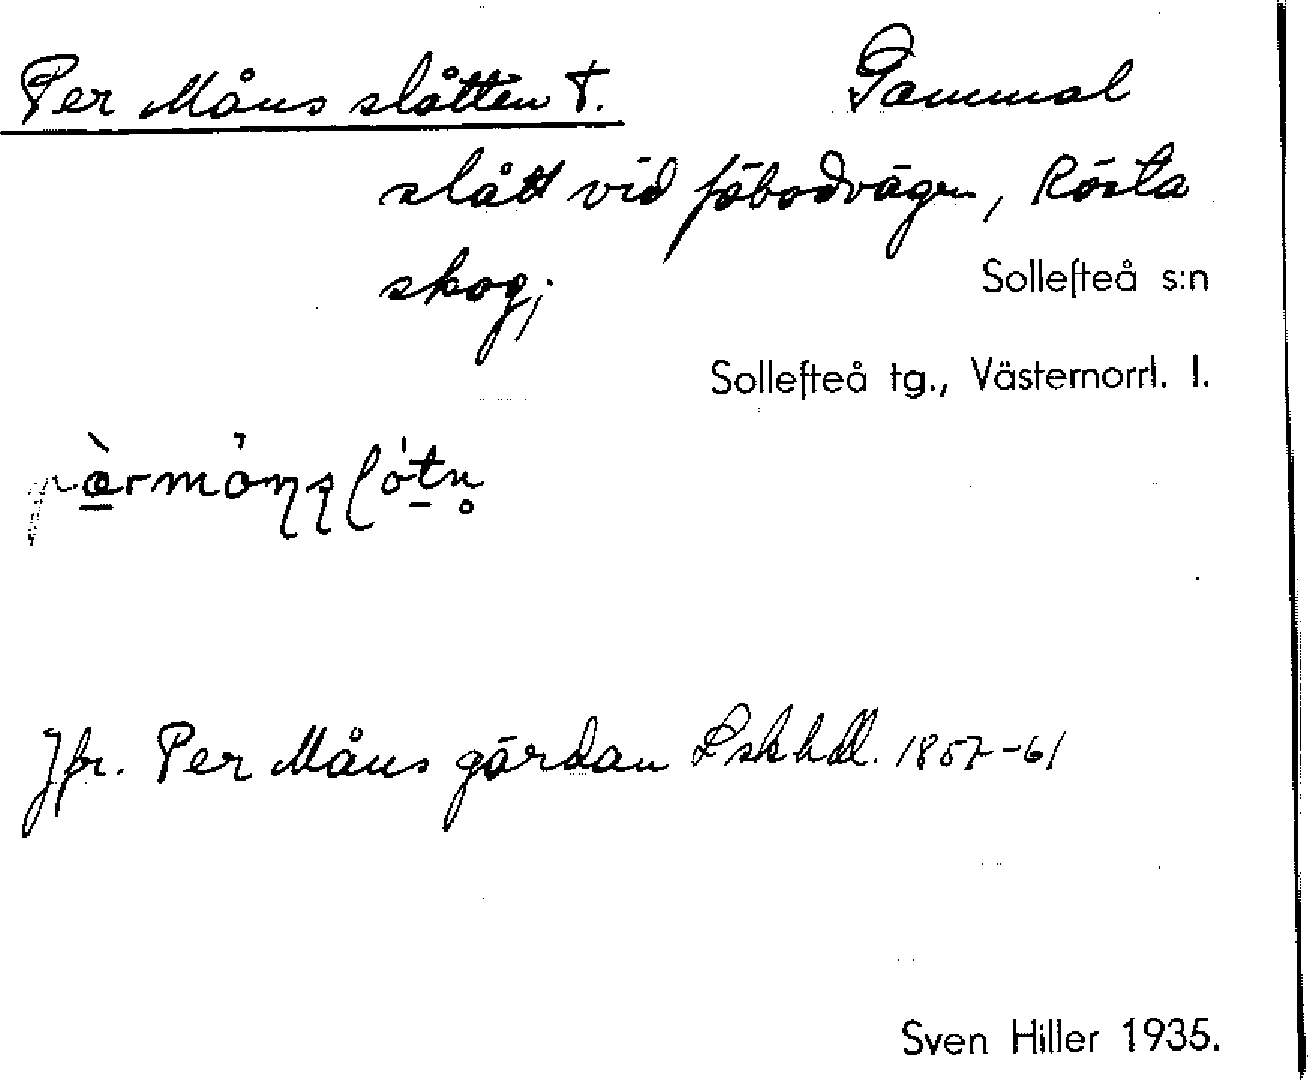 Per Måns slåtten †. Gammal
slått vid fäbodvägen, Rösta
skog;
Sollefteå s:n
Sollefteå tg., Västernorrl. l.
Jfr. Per Måns gärdan Lskhdl. 1857-61
Sven Hiller 1935.